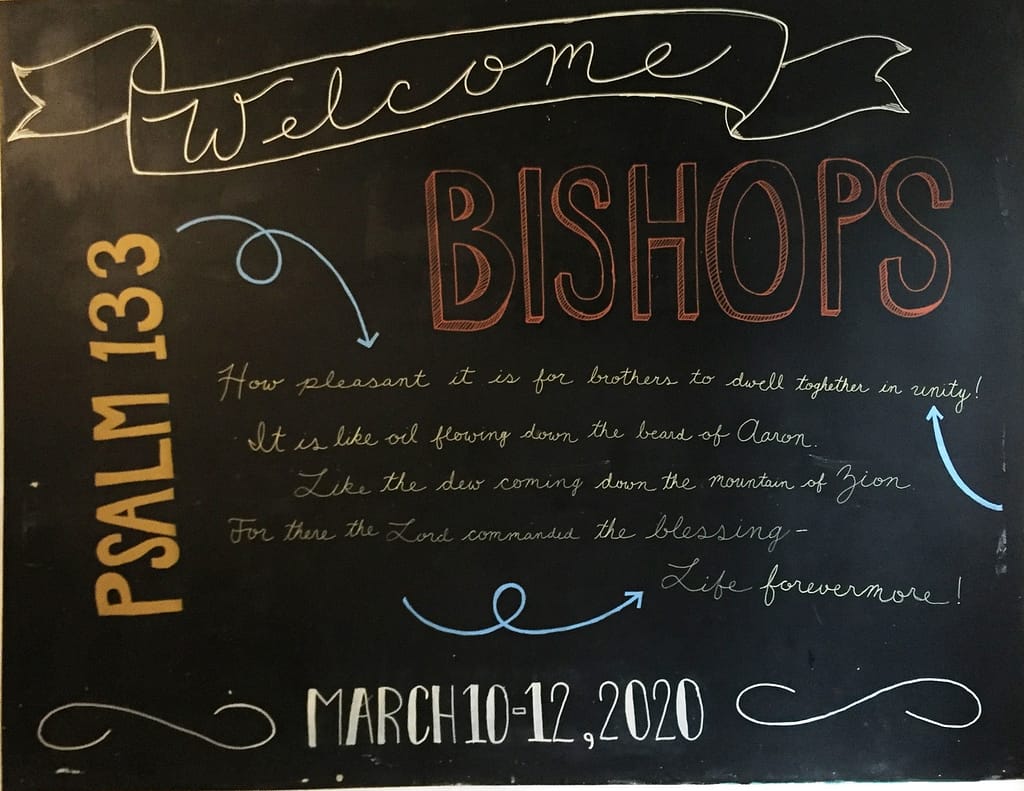 Welcome
BISHOPS
PSALM 133
How pleasant it is for brothers to dwell toghether in unity!
It is like oil flowing down the beard of Aaron.
Like the dew coming down the mountain of Zion
For there the Lord commanded the blessing-
Life forevermore!
MARCH 10-12, 2020